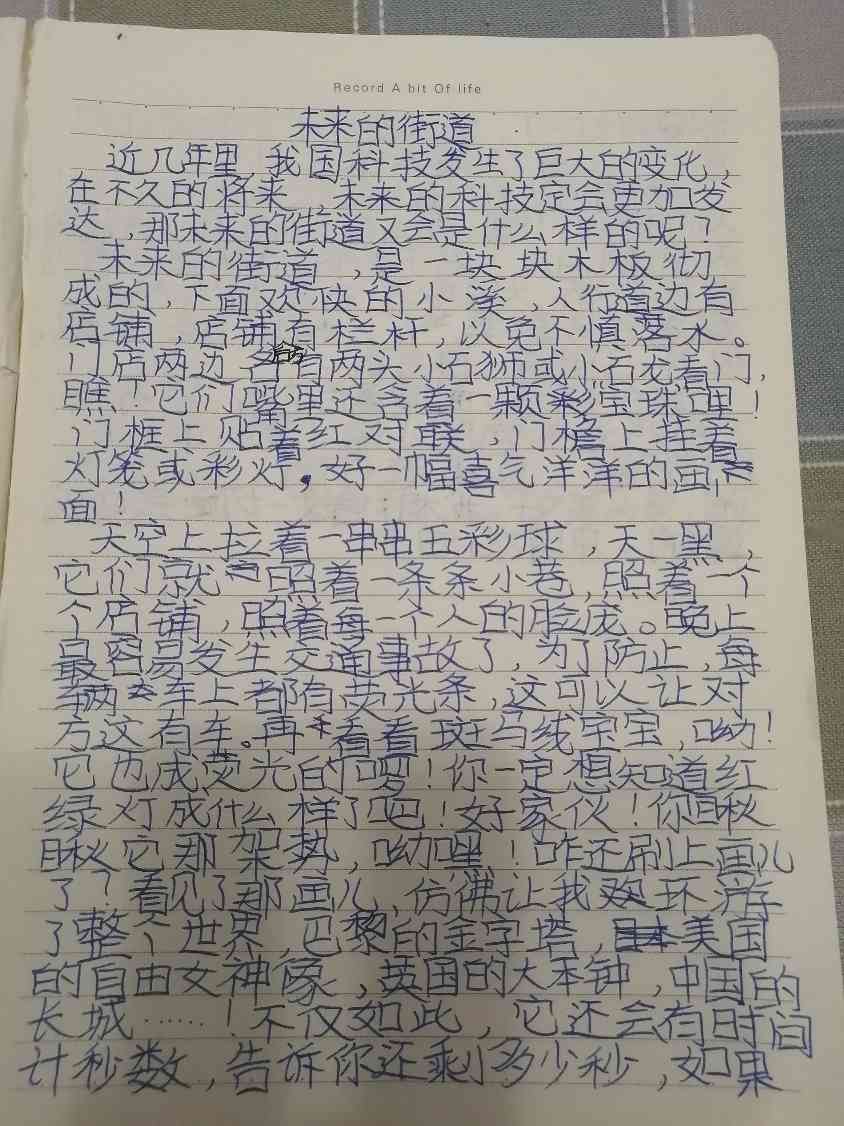 Record A bit Of life
未来的街道
近几年里,我国科技发生了巨大的变化,
在不久的将来,未来的科技定会更加发
达,那未来的街道又会是什么样的呢?
未来的街道,是一块块木板彻
成的,下面欢快的小溪,人行道边有
店铺,店铺有栏杆,以免不慎落水。
门店两边有两头小石狮或小石龙看门,
瞧!它们嘴里还含着一颗彩宝珠哩!
门框上贴着红对联,门檐上挂着
灯笼或彩灯,好一幅喜气洋洋的画
面!
天空上拉着一串串五彩球,天一黑,
它们就照着一条条小巷,照着一个
个店铺,照着每一个人的脸庞。晚上
最容易发生交通事故了,为了防止,每
辆车上都有荧光条,这可以让对
方这有车。再看看斑马线宝宝,呦!
它也成荧光的啰!你一定想知道红
绿灯成什么样了吧!好家伙!你瞅
瞅它那架势,呦嘿!咋还刷上画儿
了?看见了那画儿,仿佛让我环游
了整个世界,巴黎的金字塔,美国
的自由女神像,英国的大本钟,中国的
长城……!不仅如此,它还会有时间
计秒数,告诉你还剩多少秒,如果